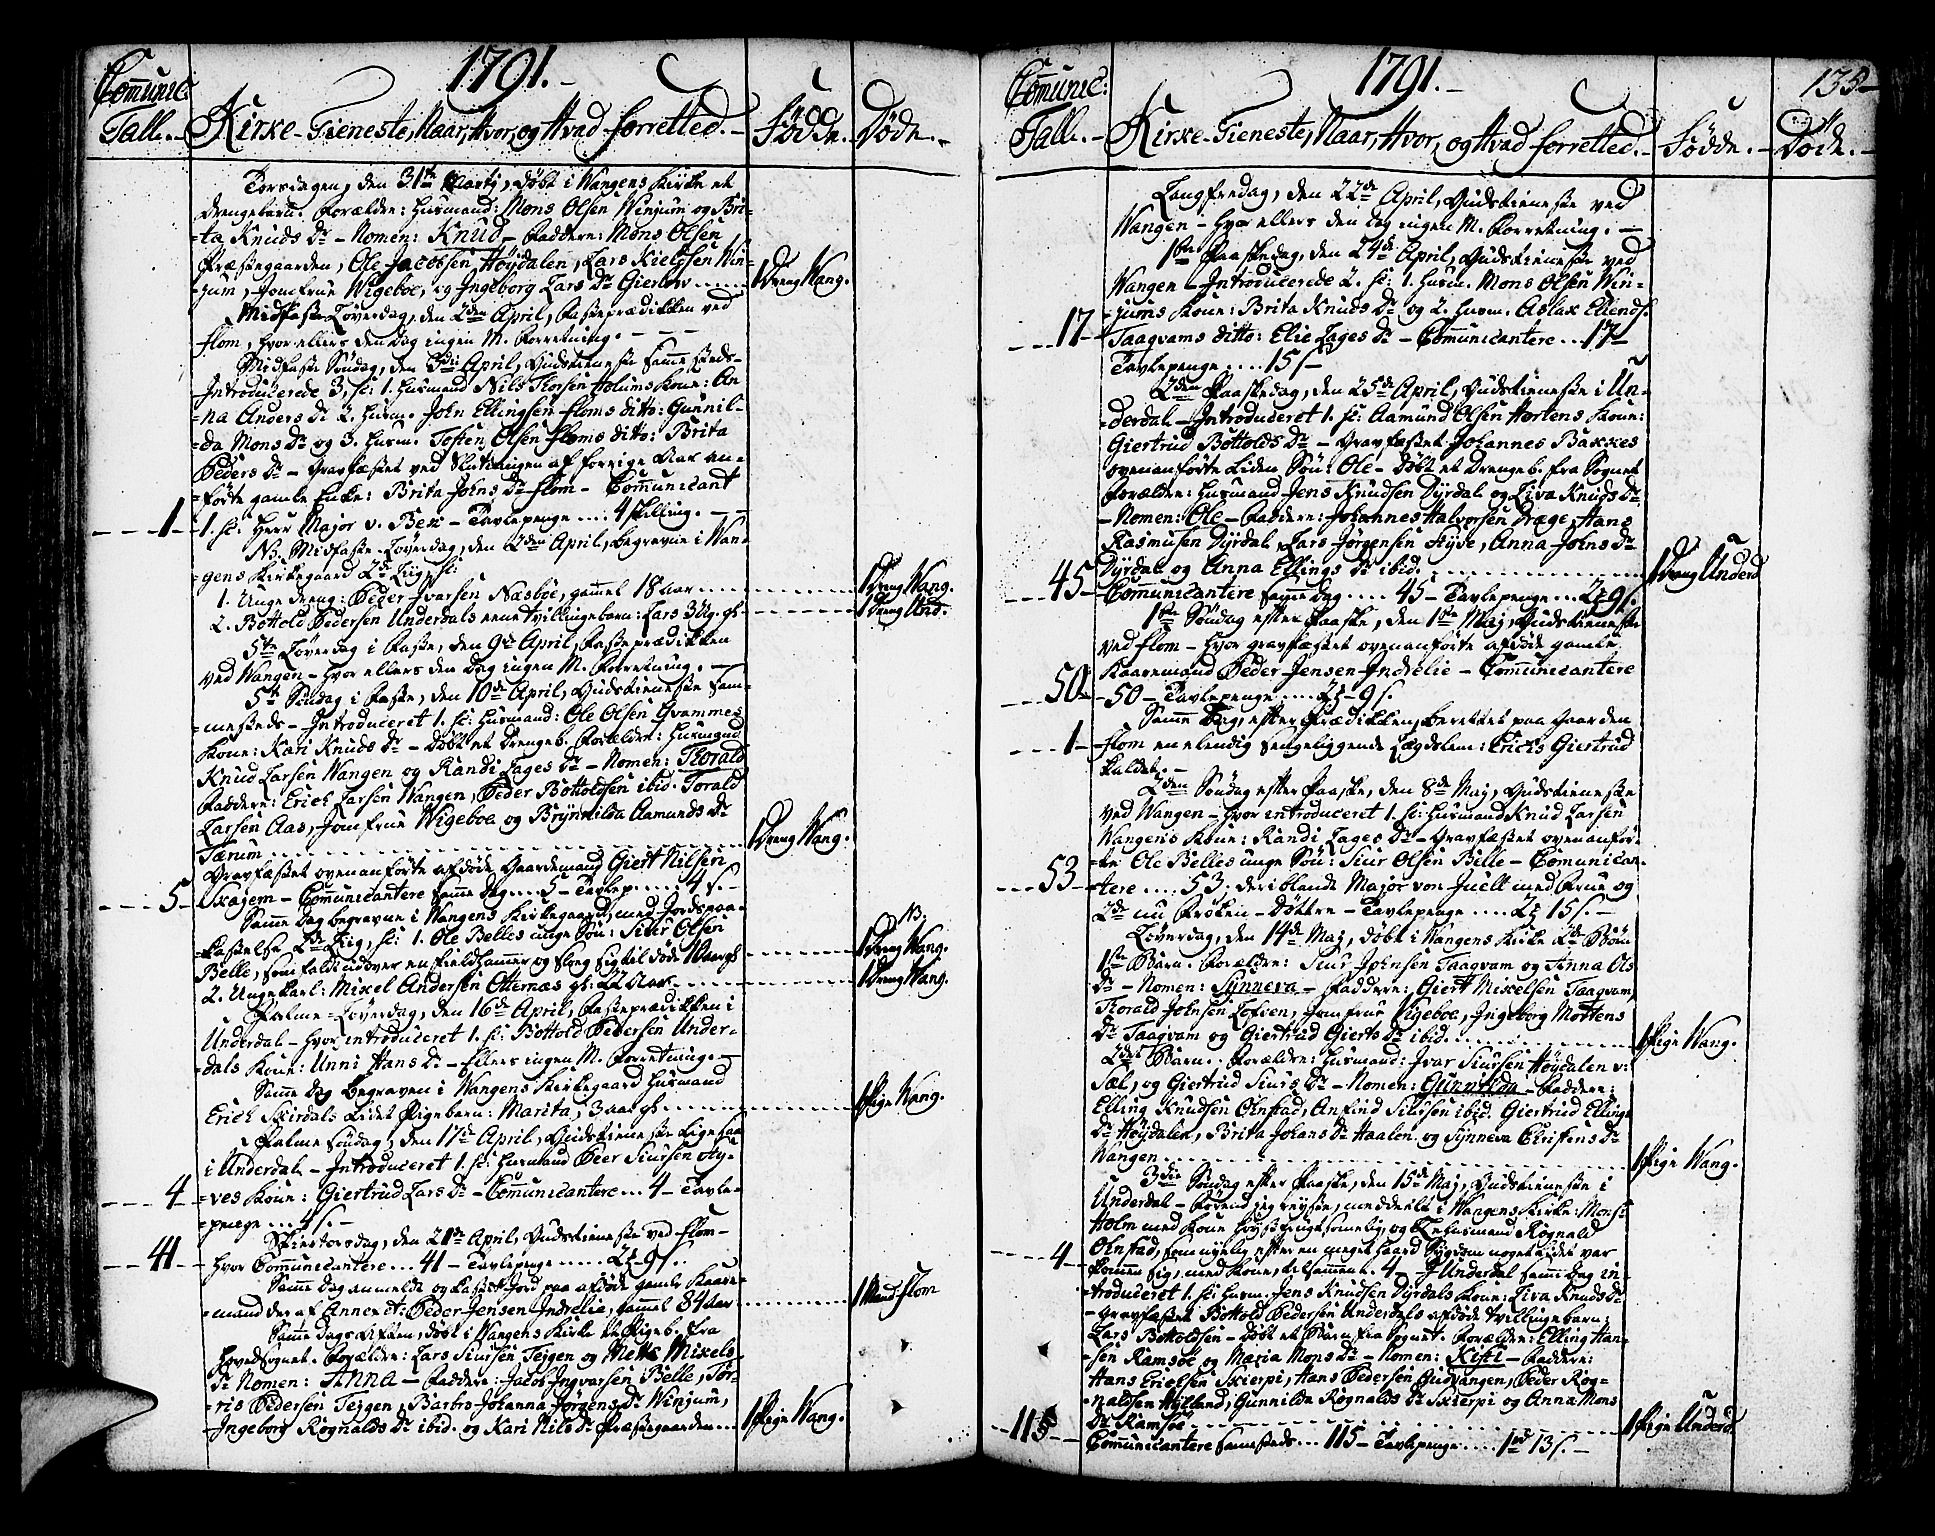 1791.
Com̅unic:
Tall.
Kirke-Tieneste, Naar, Hvor, og Hvad forretted.
Födde.
Döde.
Torsdagen, den 31te Martj, döbt i Wangens Kirke et
drengebarn. Forældre: Husmand: Mons Olsen Winjum og Bri-
ta Knuds Dr - Nomen: Knud - Faddere: Mons Olsen
Præstegaarden, Ole Jacobsen Höydalen, Lars Kieldsen Win-
jum, Jomfrue Wigeboe, og Ingeborg Lars Dr Gierlow
1 Dreng Wang.
Midfaste Löverdag, den 2den April, Fasteprædikken ved
Flom, hvor ellers den dag ingen M. Forretning.
Midfaste Söndag, den 3die April, Gudstieneste sam̅e steds
Introducerede 3, sc: 1. Husmand Nils Torsen Holums Kone: An
na Anders Dr 2. Husm. John Ellingsen Floms ditto: Gunnil-
da Mons Dr og 3. Husm. Tosten Olsen Floms ditto: Brita
Peders Dr - Gravfæstet ved Slutningen af forrige Aar an-
förte gamle Enke: Brita Johns Dr Flom - Com̅unicant
1
1. sc: Herr Major v. Bex - Tavlepenge .... 4 skilling.
NB. Midfaste-Löverdag, den 2den April, begravne i Wan
gens Kirkegaard 2de Liig, sc:
1. Unge dreng: Peder Ivarsen Næsboe, gammel 18 aar
1 Dreng Wang.
2. Bottold Pedersen Underdals eene tvillingebarn: Lars 3 Ug. gl.
1 Dreng Und.
5te Löverdag i Faste, den 9de April, Fasteprædikken
ved Wangen - hvor ellers den Dag ingen M. Forretning.
5te Söndag i Faste, den 10de April, Gudstieneste sam-
mesteds - Introduceret 1. sc: Husmand: Ole Olsen Qvammes
Kone: Kari Knuds Dr - Döbt et Drengeb. Forældre: Husmand
Knud Larsen Wangen og Randi Lages Dr - Nomen: Thorald
Faddere: Erich Larsen Wangen, Peder Bottoldsen ibid. Torald
Larsen Aas, Jomfrue Wigeboe og Brynnilda Aamunds Dr
Tærum
1 Dreng Wang.
Gravfæstet ovenanförte afdöde Gaardemand Giert Nilsen
5
Skagem - Com̅unicantere sam̅e dag .... 5 - Tavlep. .... 4 s.
Sam̅e Dag begravne i Wangens Kirkegaard, med Jordspaa-
kastelse 2de Liig, sc: 1. Ole Belles unge Sön: Siur Olsen
NB.
Belle, som faldt udover en Field ham̅er og slog sig til döde 10 aar gl.
1 Dreng Wang.
2. Ungekarl: Mikel Andersen Otternæs gl. 22 Aar
1 Dreng Wang.
Palme-Löverdag, den 16de April, Fasteprædikken i
Underdal - hvor introduceret 1. sc: Bottold Pedersen Under-
dals Kone: Unni Hans Dr - Ellers ingen M. Forretning.
Sam̅e Dag begraven i Wangens Kirkegaard Husmand
Erich Skirdals Lidet Pigebarn: Marita, 3 aar gl.
1 Pige Wang.
Palme Söndag, den 17de April, Gudstieneste ligesaa
i Underdal - Introduceret 1. sc: Husmand Peer Siursen Hy-
4
ves Kone: Giertrud Lars Dr - Com̅unicantere ... 4 - Tavle-
penge ... 4 s.
Skiertorsdag, den 21de April, Gudstieneste ved Flom -
41
hvor Com̅unicantere ... 41 - Tavlepenge ...... 2 - 9 s.
Sam̅e Dag anmelde og kastet Jord paa afdöde gamle Kaare-
mand der af Annexet: Peder Jensen Indrelie, gammel 84 Aar
1 Mand Flom
Sam̅e Dags Aften, döbt i Wangens Kirke et Pigeb. fra
hovedsognet. Forældre: Lars Siursen Tejgen og Mette Mikels
Dr Nomen: Anna - Faddere: Jacob Ingvarsen Belle, Tor-
ris Pedersen Tejgen, Barbro Johanna Jörgens Dr Winjum,
Ingeborg Rognalds Dr ibid. og Kari Nils Dr Præstegaarden
1 Pige Wang.
135
1791.
Com̅unic:
Tall.
Kirke-Tieneste, Naar, Hvor, og Hvad forretted.
Födde.
Döde.
Langfredag, den 22de April, Gudstieneste ved
Wangen - hvor ellers den Dag ingen M. Forretning.
1ste Paaskedag, den 24de April, Gudstieneste ved
Wangen - Introducerede 2. sc: 1. Husm. Mons Olsen Win-
jums Kone: Brita Knuds Dr og 2. Husm. Aslak Ellends.
17
Taagvams ditto: Elie Lages Dr - Com̅unicantere ... 17
Tavlepenge .... 15 s
2den Paaskedag, den 25de April, Gudstieneste i Un-
derdal - Introduceret 1. sc: Aamund Olsen Hortens Kone:
Giertrud Bottolds Dr - Gravfæstet Johannes Bakkes
ovenanförte Liden Sön: Ole - Döbt et Drengeb. fra Sognet
Forældre: Husmand Jens Knudsen Dyrdal og Liva Knuds Dr
- Nomen: Ole - Faddere: Johannes Halvorsen Drege, Hans
Rasmusen Dyrdal, Lars Jörgensen Hyve, Anna Johns Dr
Dyrdal og Anna Ellings Dr ibid.
1 Dreng Underd
45
Com̅unicantere sam̅e Dag .... 45 - Tavlepenge ... 2 9 s.
1ste Söndag efter Paaske, den 1ste Maj, Gudstieneste
ved Flom - hvor gravfæstet ovenanförte afdöde gamle
Kaaremand Peder Jensen Indrelie - Com̅unicantere
50
- 50 - Tavlepenge ..... 2 - 9 s.
Sam̅e Dag, efter Prædikken, berettet paa Gaarden
1
Flom en elendig sengeliggende Lægdslem: Erichs Giertrud
kaldet.
2den Söndag efter Paaske, den 8de Maj, Gudstieneste
ved Wangen - hvor introduceret 1. sc: Husmand Knud Larsen
Wangens Kone: Randi Lages Dr - Gravfæstet ovenanför-
te Ole Belles unge Sön: Siur Olsen Belle - Com̅unican-
53
tere .... 53. deriblandt Major von Juell med Frue og
2de nu Fröken-Döttre - Tavlepenge .... 2 15 s.
Löverdag, den 14de Maj, döbt i Wangens Kirke 2de Börn
1ste Barn. Forældre: Siur Johnsen Taagvam og Anna Ols
Dr - Nomen: Synneva - Faddere: Giert Mikelsen Taagvam,
Thorald Johnsen Loften, Jomfrue Wigeboe, Ingeborg Mortens
Dr Taagvam og Giertrud Gierts Dr ibid.
1 Pige Wang.
2det Barn. Forældre: Husmand: Ivar Siursen Höydalen v:
Sæl, og Giertrud Siurs Dr - Nomen: Gunnilda - Faddere:
Elling Knudsen Ohnstad, Anfind Siursen ibid. Giertrud Ellings
Dr Höydalen, Brita Johans Dr Haalen og Synneva Christens Dr
Wangen
1 Pige Wang.
3die Söndag efter Paaske, den 15de Maj, Gudstieneste i
Underdal - Förend jeg reyste, meddeelt i Wangens Kirke: Monsr
Holm med Kone höystfrugtsommelig og Husmand Rögnald
Ohnstad, som nyelig efter en meget haard Sygdom noget lidet var
4
kommen sig, med Kone, tilsammen 4 - I Underdal sam̅e Dag in-
troduceret 1. sc: Husm. Jens Knudsen Dyrdals Kone: Liva Knuds Dr
- Gravfæstet Bottold Pedersen Underdals afdöde tvillingebarn:
Lars Bottoldsen - Döbt et Barn fra Sognet. Forældre: Elling Han-
sen Ramsöe og Maria Mons Dr - Nomen: Kisti - Faddere:
Hans Erichsen Skierpi, Hans Pedersen Gudvangen, Peder Rog-
naldsen Hylland, Gunnilda Rognalds Dr Skierpi og Anna Mons
Dr Ramsöe
1 Pige Underd.
115
Com̅unicantere sam̅esteds ... 115 - Tavlepenge .... 1 rd 13 s.